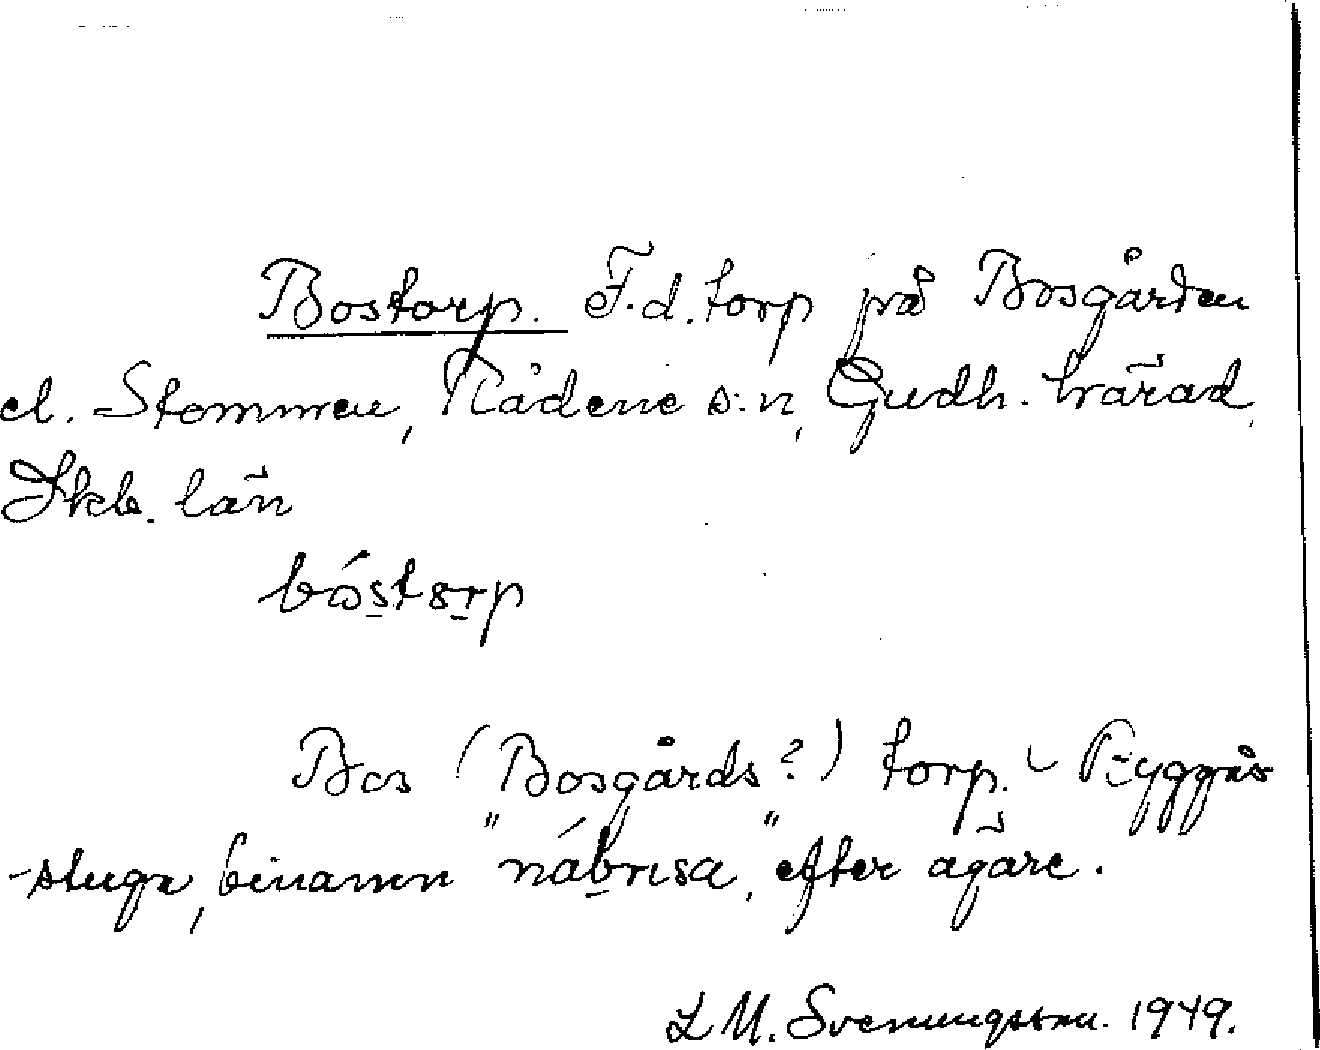 Bostorp. F.d. torp på Bosgården
el. Stommen, Rådene s:n, Gudh. härad,
Skb. län
bóstorp
Bos (Bosgårds?) torp. - Ryggås
-stuga, binamn "nábnsa", efter ägare.
L M. Svenungsson. 1949.